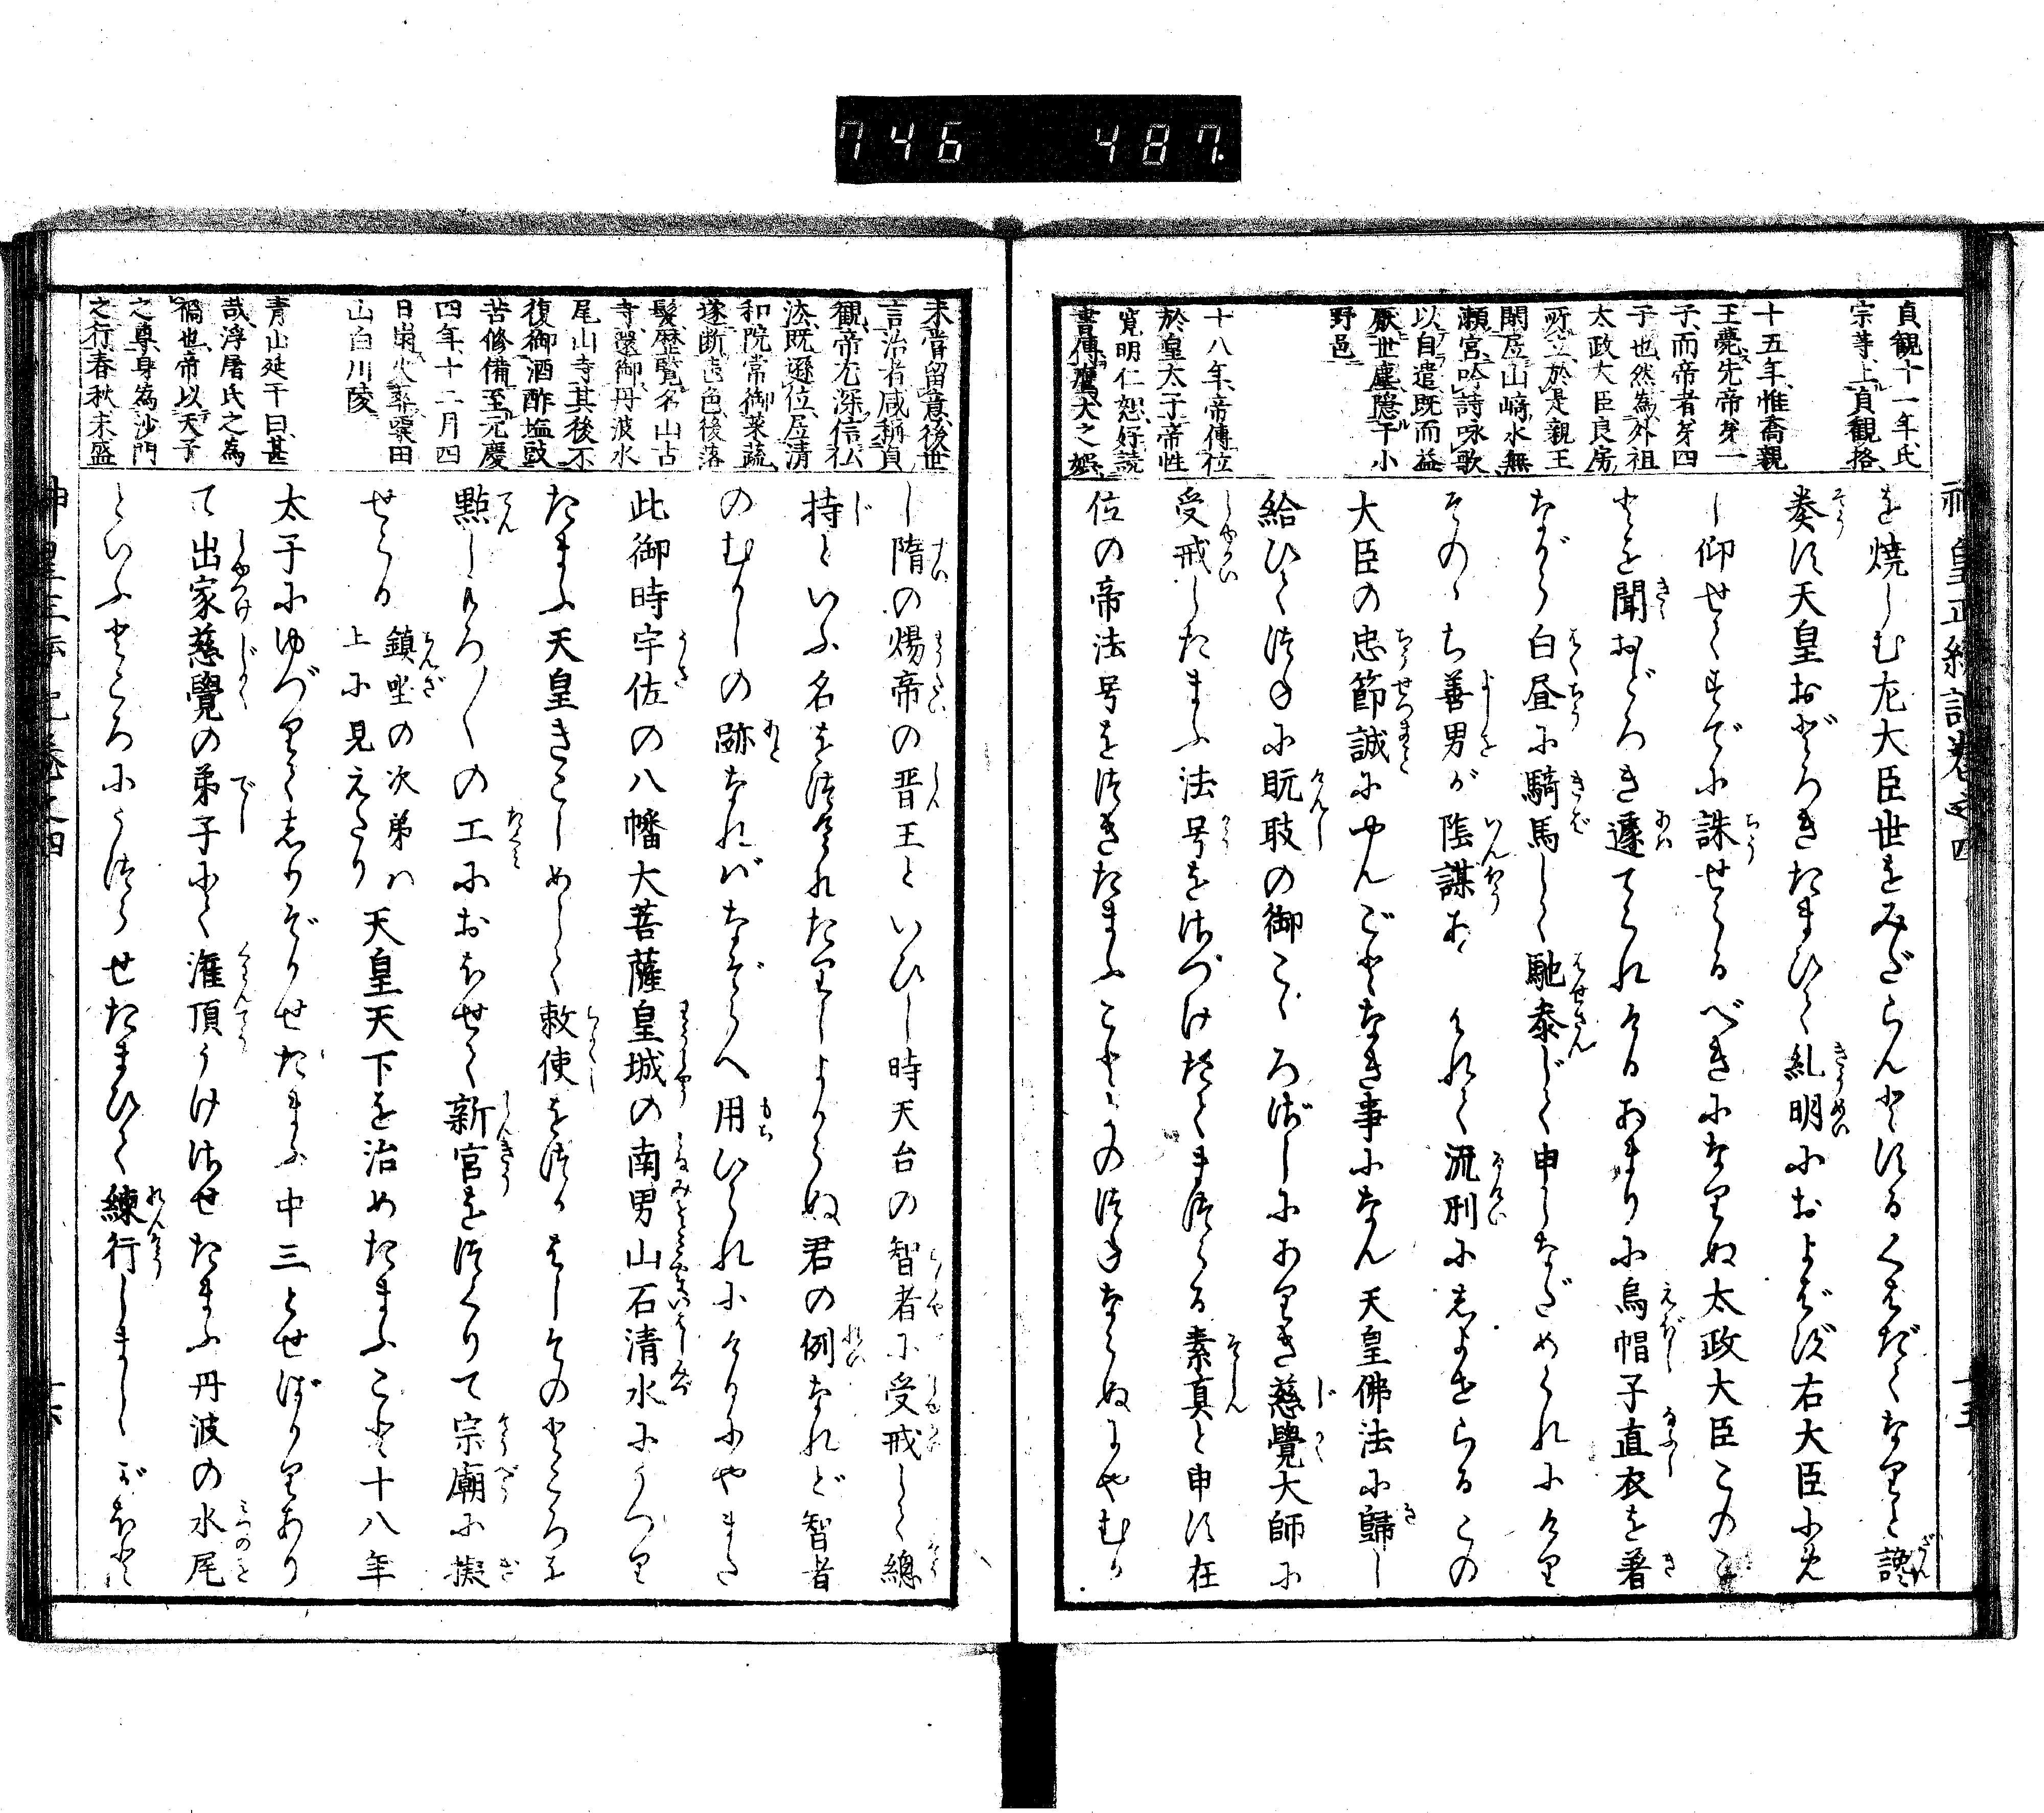 746 487.
神皇正統記巻之四
十五
貞観十一年、氏
宗等上貞観格、
十五年、惟喬親
王薨先帝第一
子、而帝者第四
子也、然為外祖
太政大臣良房
所立、於是親王
閑居山﨑水無
瀬宮、吟詩咏歌
以自遣既而益
厭世塵隠于小
野邑
十八年、帝傳位
於皇太子帝性
寛明仁恕、好読
書傳鷹犬之娯
を焼しむ左大臣世をみだらんとするくはだてなりと讒
奏す天皇おどろきたまひて糺明におよばず右大臣に免
し仰せてすでに誅せらるべきになりぬ太政大臣このこ
とを聞おどろき遽てられけるあまりに烏帽子直衣を著
ながら白昼に騎馬して馳参じて申しなだめられにけり
そのゝち善男が陰謀あらはれて流刑に志よせらるこの
大臣の忠節誠にやんごとなき事になん天皇佛法に歸し
給ひてつねに脱屣の御こゝろざしにありき慈覺大師に
受戒したまふ法号をさづけたてまつらる素真と申す在
位の帝法号をつきたまふことよのつねならぬにやむか
未嘗留意、後世
言治者咸稱貞
観、帝尤深信仏
法、既遜位、居清
和院常御菜蔬、
遂断声色、後落
髪歴覧名山古
寺、還御丹波水
尾山寺其後不
復御酒酢塩豉
苦修備至元慶
四年、十二月四
日崩火葬粟田
山白川陵
青山延于曰、甚
哉浮屠氏之為
禍也、帝以天子
之尊身為沙門
之行春秋未盛
し隋の煬帝の晋王といひし時天台の智者に受戒して總
持といふ名をつけられたりしよからぬ君の例なれど智者
のむかしの跡なればなぞらへ用ひられにけりにやまた
此御時宇佐の八幡大菩薩皇城の南男山石清水にうつり
たまふ天皇きこしめして敕使をつかはしそのところを
點しもろ〱の工におほせて新宮をつくりて宗廟に擬
せらる 鎮坐の次第ハ上に見えたり 天皇天下を治めたまふこと十八年
太子にゆづりてしりぞかせたまふ中三とせばかりあり
て出家慈覺の弟子にて潅頂うけさせたまふ丹波の水尾
といふところにうつらせたまひて練行しましゝがほど